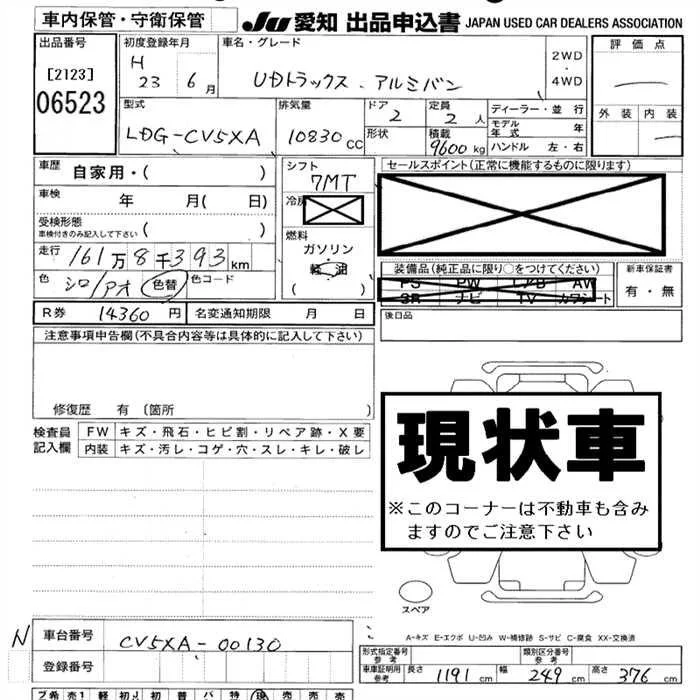 車内保管・守衛保管
JU 愛知 出品申込書 JAPAN USED CAR DEALERS ASSOCIATION
出品番号
[2123]
06523
初度登録年月
H 23 6月
車名・グレード
UDトラックス・アルミバン
2WD
・
4WD
評価点
外装 内装
型式
LDG-CV5XA
排気量
10830 CC
ドア
2
形状
定員
2人
積載
9600kg
ディーラー・並行
モデル年式 年
ハンドル 左・右
車歴 自家用・( )
車検 年 月( 日)
受検形態
車検付きのみ記入して下さい ( )
走行 161万8千393km
色 シロ/アオ 色替 色コード
シフト
7MT
冷房
燃料
ガソリン
軽油
( )
セールスポイント(正常に機能するものに限ります)
装備品(純正品に限り○をつけてください)
PS PW エアB AW
SR ナビ TV カワシート
新車保証書
有・無
R券 14360 円 名変通知期限 月 日
後日品
注意事項申告欄(不具合内容等は具体的に記入して下さい)
修復歴 有 〔箇所 〕
検査員記入欄
FW キズ・飛石・ヒビ割・リペア跡・X要
内装 キズ・汚レ・コゲ・穴・スレ・キレ・破レ
現状車
※このコーナーは不動車も含み
ますのでご注意下さい
スペア
A-キズ E-エクボ U-凹み W-補修跡 S-サビ C-腐食 XX-交換済
N 車台番号 CV5XA-00130
登録番号
形式指定番号 参考
類別区分番号 参考
車庫証明用 参考 長さ 1191 cm 幅 249 cm 高さ 376 cm